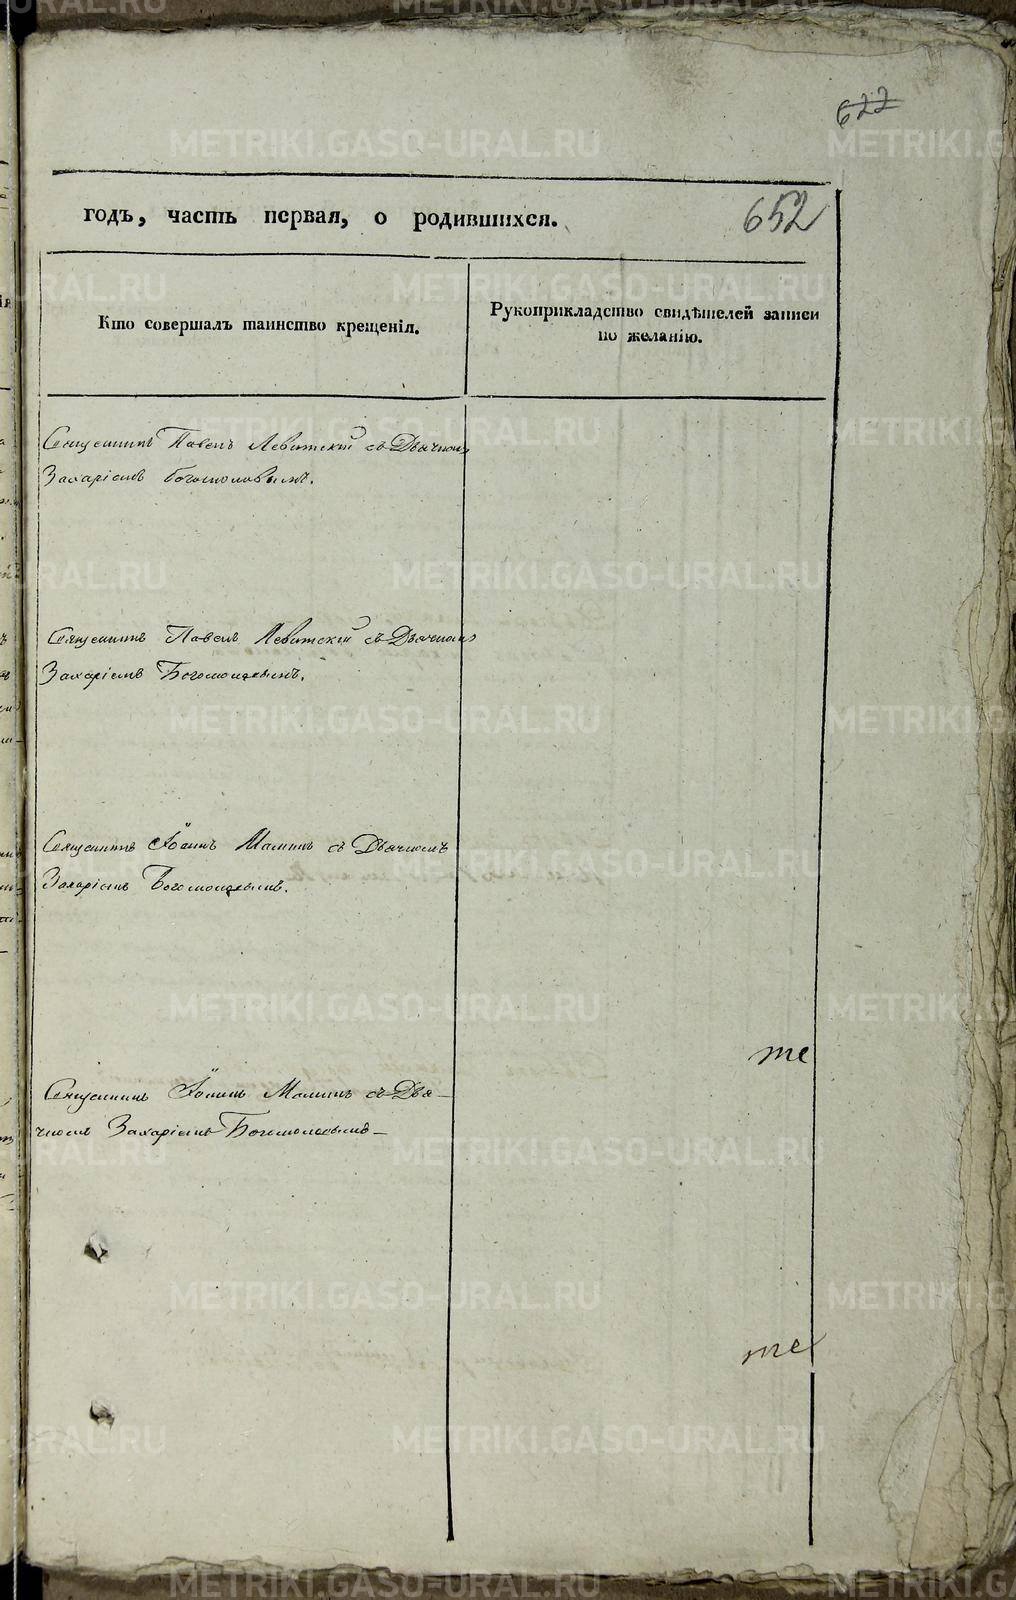 622
652
годъ, часть первая, о родившихся.
Кто совершалъ таинство крещенія.
Рукоприкладство свидѣтелей записи
по желанію.
Священникъ Павелъ Левитскій съ Дьячкомъ
Захаріемъ Богомоловымъ.
Священникъ Павелъ Левитскій съ Дьячкомъ
Захаріемъ Богомоловымъ.
Священникъ Іоаннъ Маминъ съ Дьячкомъ
Захаріемъ Богомоловымъ.
те
Священникъ Іоаннъ Маминъ съ Дья-
чкомъ Захаріемъ Богомоловымъ
те
METRIKI.GASO-URAL.RU